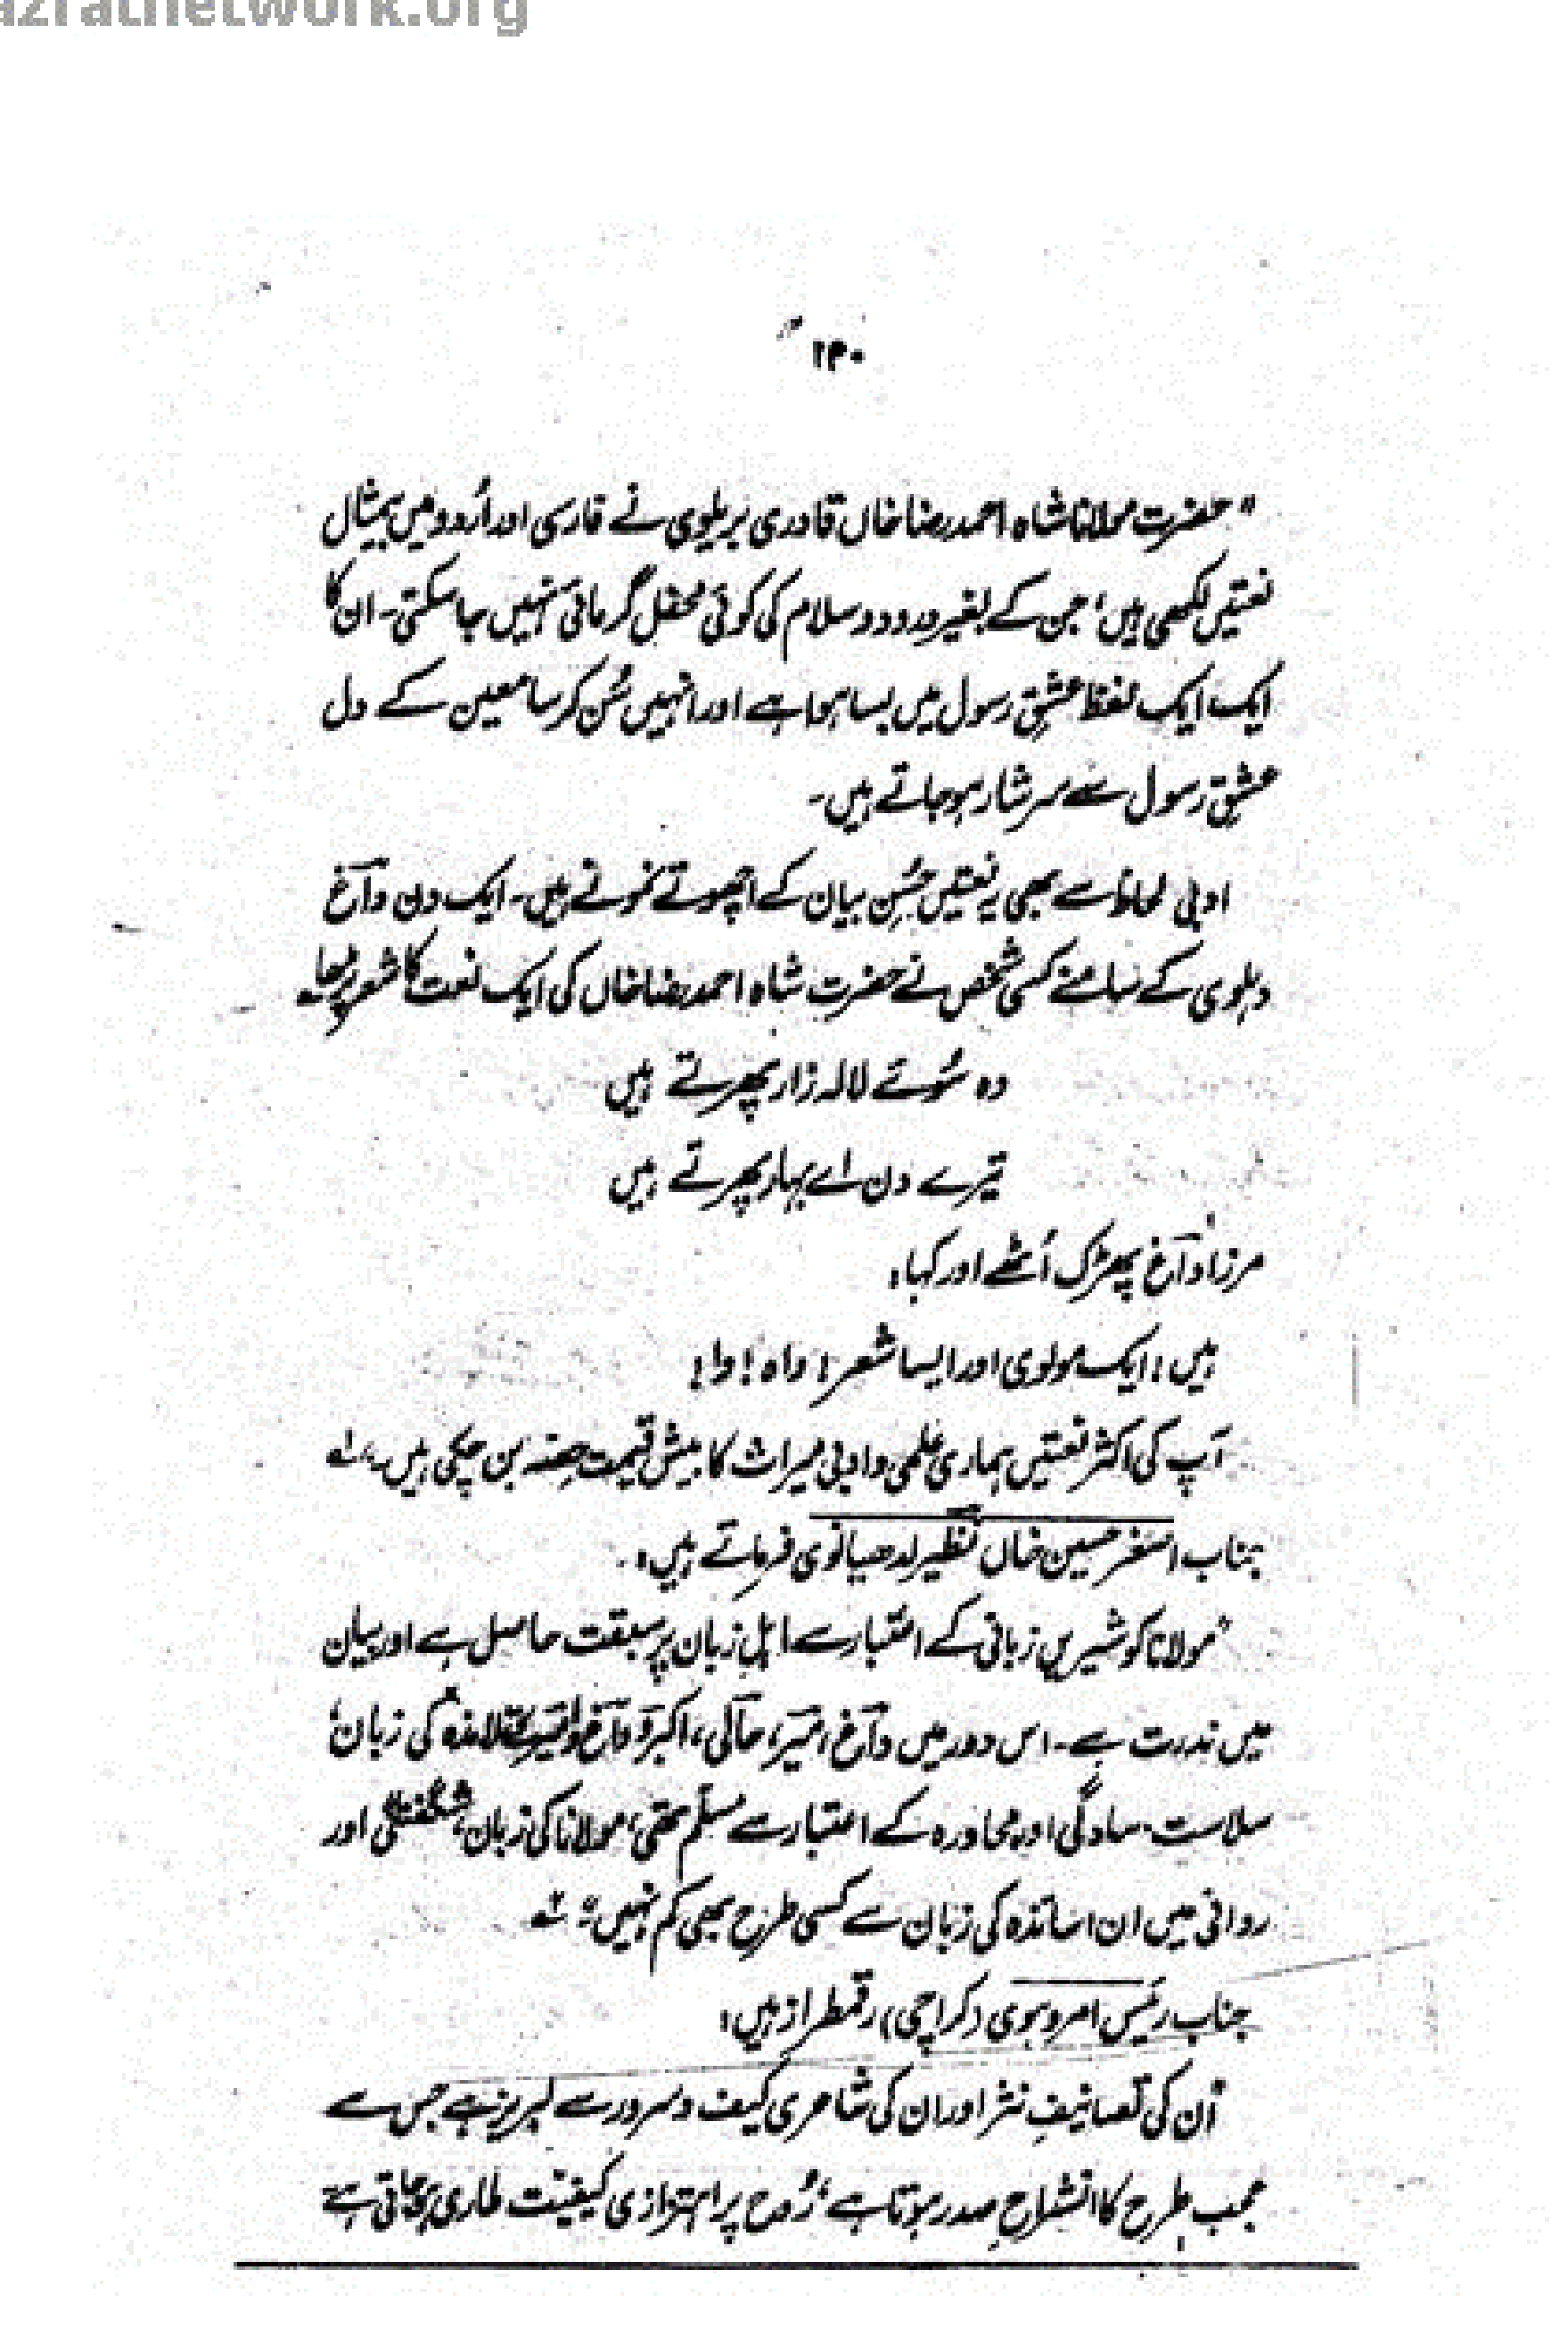 azratnetwork.org
۱۴۰
"حضرت مولانا شاہ احمد رضا خاں قادری بریلوی نے فارسی اور اُردو میں بیمثال
نعتیں لکھی ہیں، جن کے بغیر درود و سلام کی کوئی محفل گرمائی نہیں جا سکتی۔ ان کا
ایک ایک لفظ عشقِ رسول میں بسا ہوا ہے اور انہیں سُن کر سامعین کے دل
عشقِ رسول سے سرشار ہو جاتے ہیں۔
ادبی لحاظ سے بھی یہ نعتیں حُسنِ بیان کے اچھوتے نمونے ہیں۔ ایک دن داؔغ
دہلوی کے سامنے کسی شخص نے حضرت شاہ احمد رضا خاں کی ایک نعت کا شعر پڑھا۔
وہ سُوئے لالہ زار پھرتے ہیں
تیرے دن اے بہار پھرتے ہیں
مرزا داؔغ پھڑک اُٹھے اور کہا:
ہیں! ایک مولوی اور ایسا شعر! واہ! وا!
آپ کی اکثر نعتیں ہماری علمی و ادبی میراث کا بیش قیمت حصہ بن چکی ہیں۔
جناب اصغر حسین خاں نظیر لدھیانوی فرماتے ہیں:
"مولانا کو شیریں زبانی کے اعتبار سے اہلِ زبان پر سبقت حاصل ہے اور بیان
میں ندرت ہے۔ اس دور میں داؔغ، امیؔر، حاؔلی، اکبؔر و داؔغ تلامذہ کی زبان،
سلاست، سادگی اور محاورہ کے اعتبار سے مسلّم تھی، مولانا کی زبان، شگفتگی اور
روانی میں ان اساتذہ کی زبان سے کسی طرح بھی کم نہیں"
جناب رئیس امروہوی (کراچی) رقمطراز ہیں:
"اُن کی تصانیفِ نثر اور ان کی شاعری کیف و سرور سے لبریز ہے جس سے
عجب طرح کا انشراحِ صدر ہوتا ہے، رُوح پر اہتزازی کیفیت طاری ہو جاتی ہے